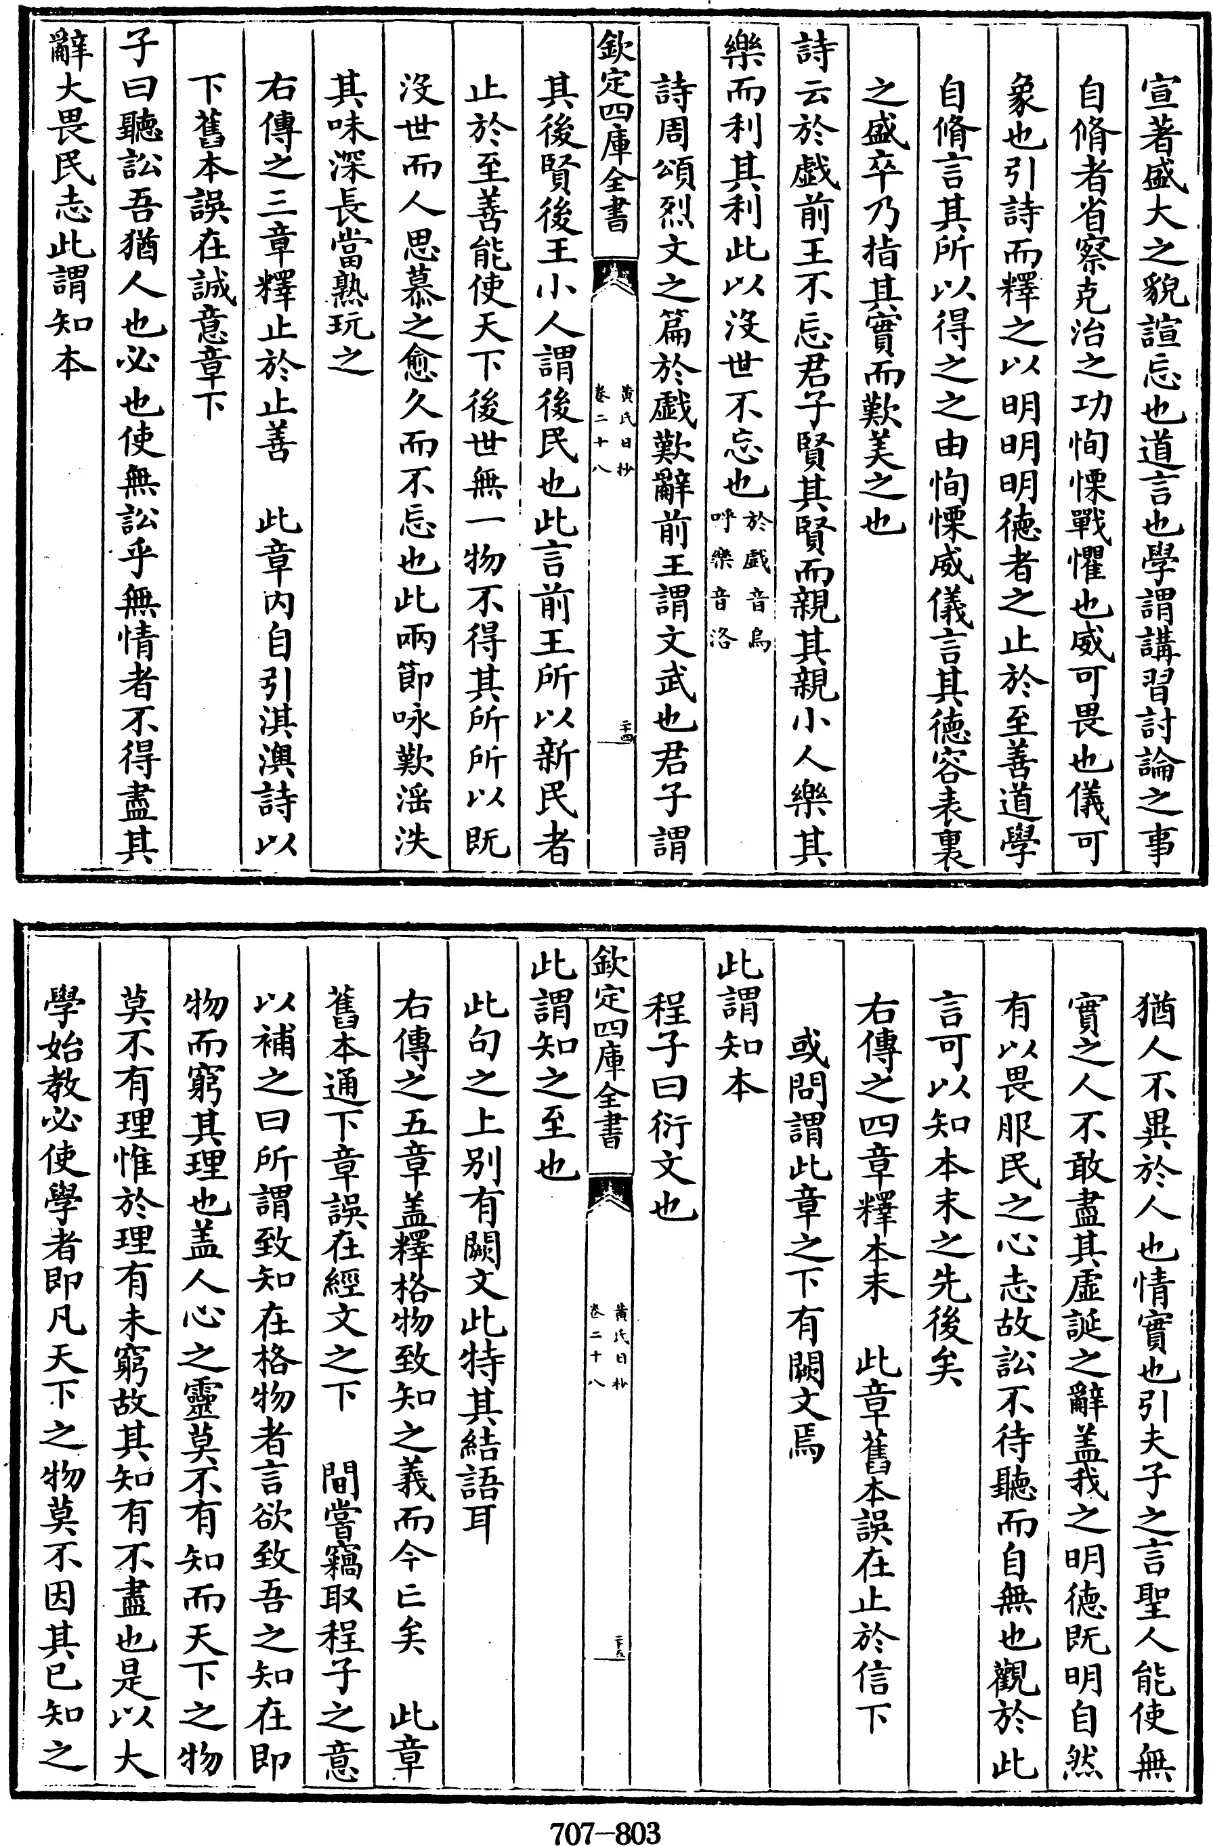 宣著盛大之貌諠忘也道言也學謂講習討論之事
自脩者省察克治之功恂慄戰懼也威可畏也儀可
象也引詩而釋之以明明明德者之止於至善道學
自脩言其所以得之之由恂慄威儀言其德容表裏
之盛卒乃指其實而歎美之也
詩云於戲前王不忘君子賢其賢而親其親小人樂其
樂而利其利此以沒世不忘也於戲音烏呼樂音洛
詩周頌烈文之篇於戲歎辭前王謂文武也君子謂
欽定四庫全書 黃氏日抄 卷二十八 二十四
其後賢後王小人謂後民也此言前王所以新民者
止於至善能使天下後世無一物不得其所所以既
沒世而人思慕之愈久而不忘也此兩節咏歎淫泆
其味深長當熟玩之
右傳之三章釋止於止善 此章內自引淇澳詩以
下舊本誤在誠意章下
子曰聽訟吾猶人也必也使無訟乎無情者不得盡其
辭大畏民志此謂知本
猶人不異於人也情實也引夫子之言聖人能使無
實之人不敢盡其虛誕之辭盖我之明德既明自然
有以畏服民之心志故訟不待聽而自無也觀於此
言可以知本末之先後矣
右傳之四章釋本末 此章舊本誤在止於信下
或問謂此章之下有闕文焉
此謂知本
程子曰衍文也
欽定四庫全書 黃氏日抄 卷二十八 二十五
此謂知之至也
此句之上別有闕文此特其結語耳
右傳之五章盖釋格物致知之義而今亡矣 此章
舊本通下章誤在經文之下 間嘗竊取程子之意
以補之曰所謂致知在格物者言欲致吾之知在即
物而窮其理也盖人心之靈莫不有知而天下之物
莫不有理惟於理有未窮故其知有不盡也是以大
學始教必使學者即凡天下之物莫不因其已知之
707-803